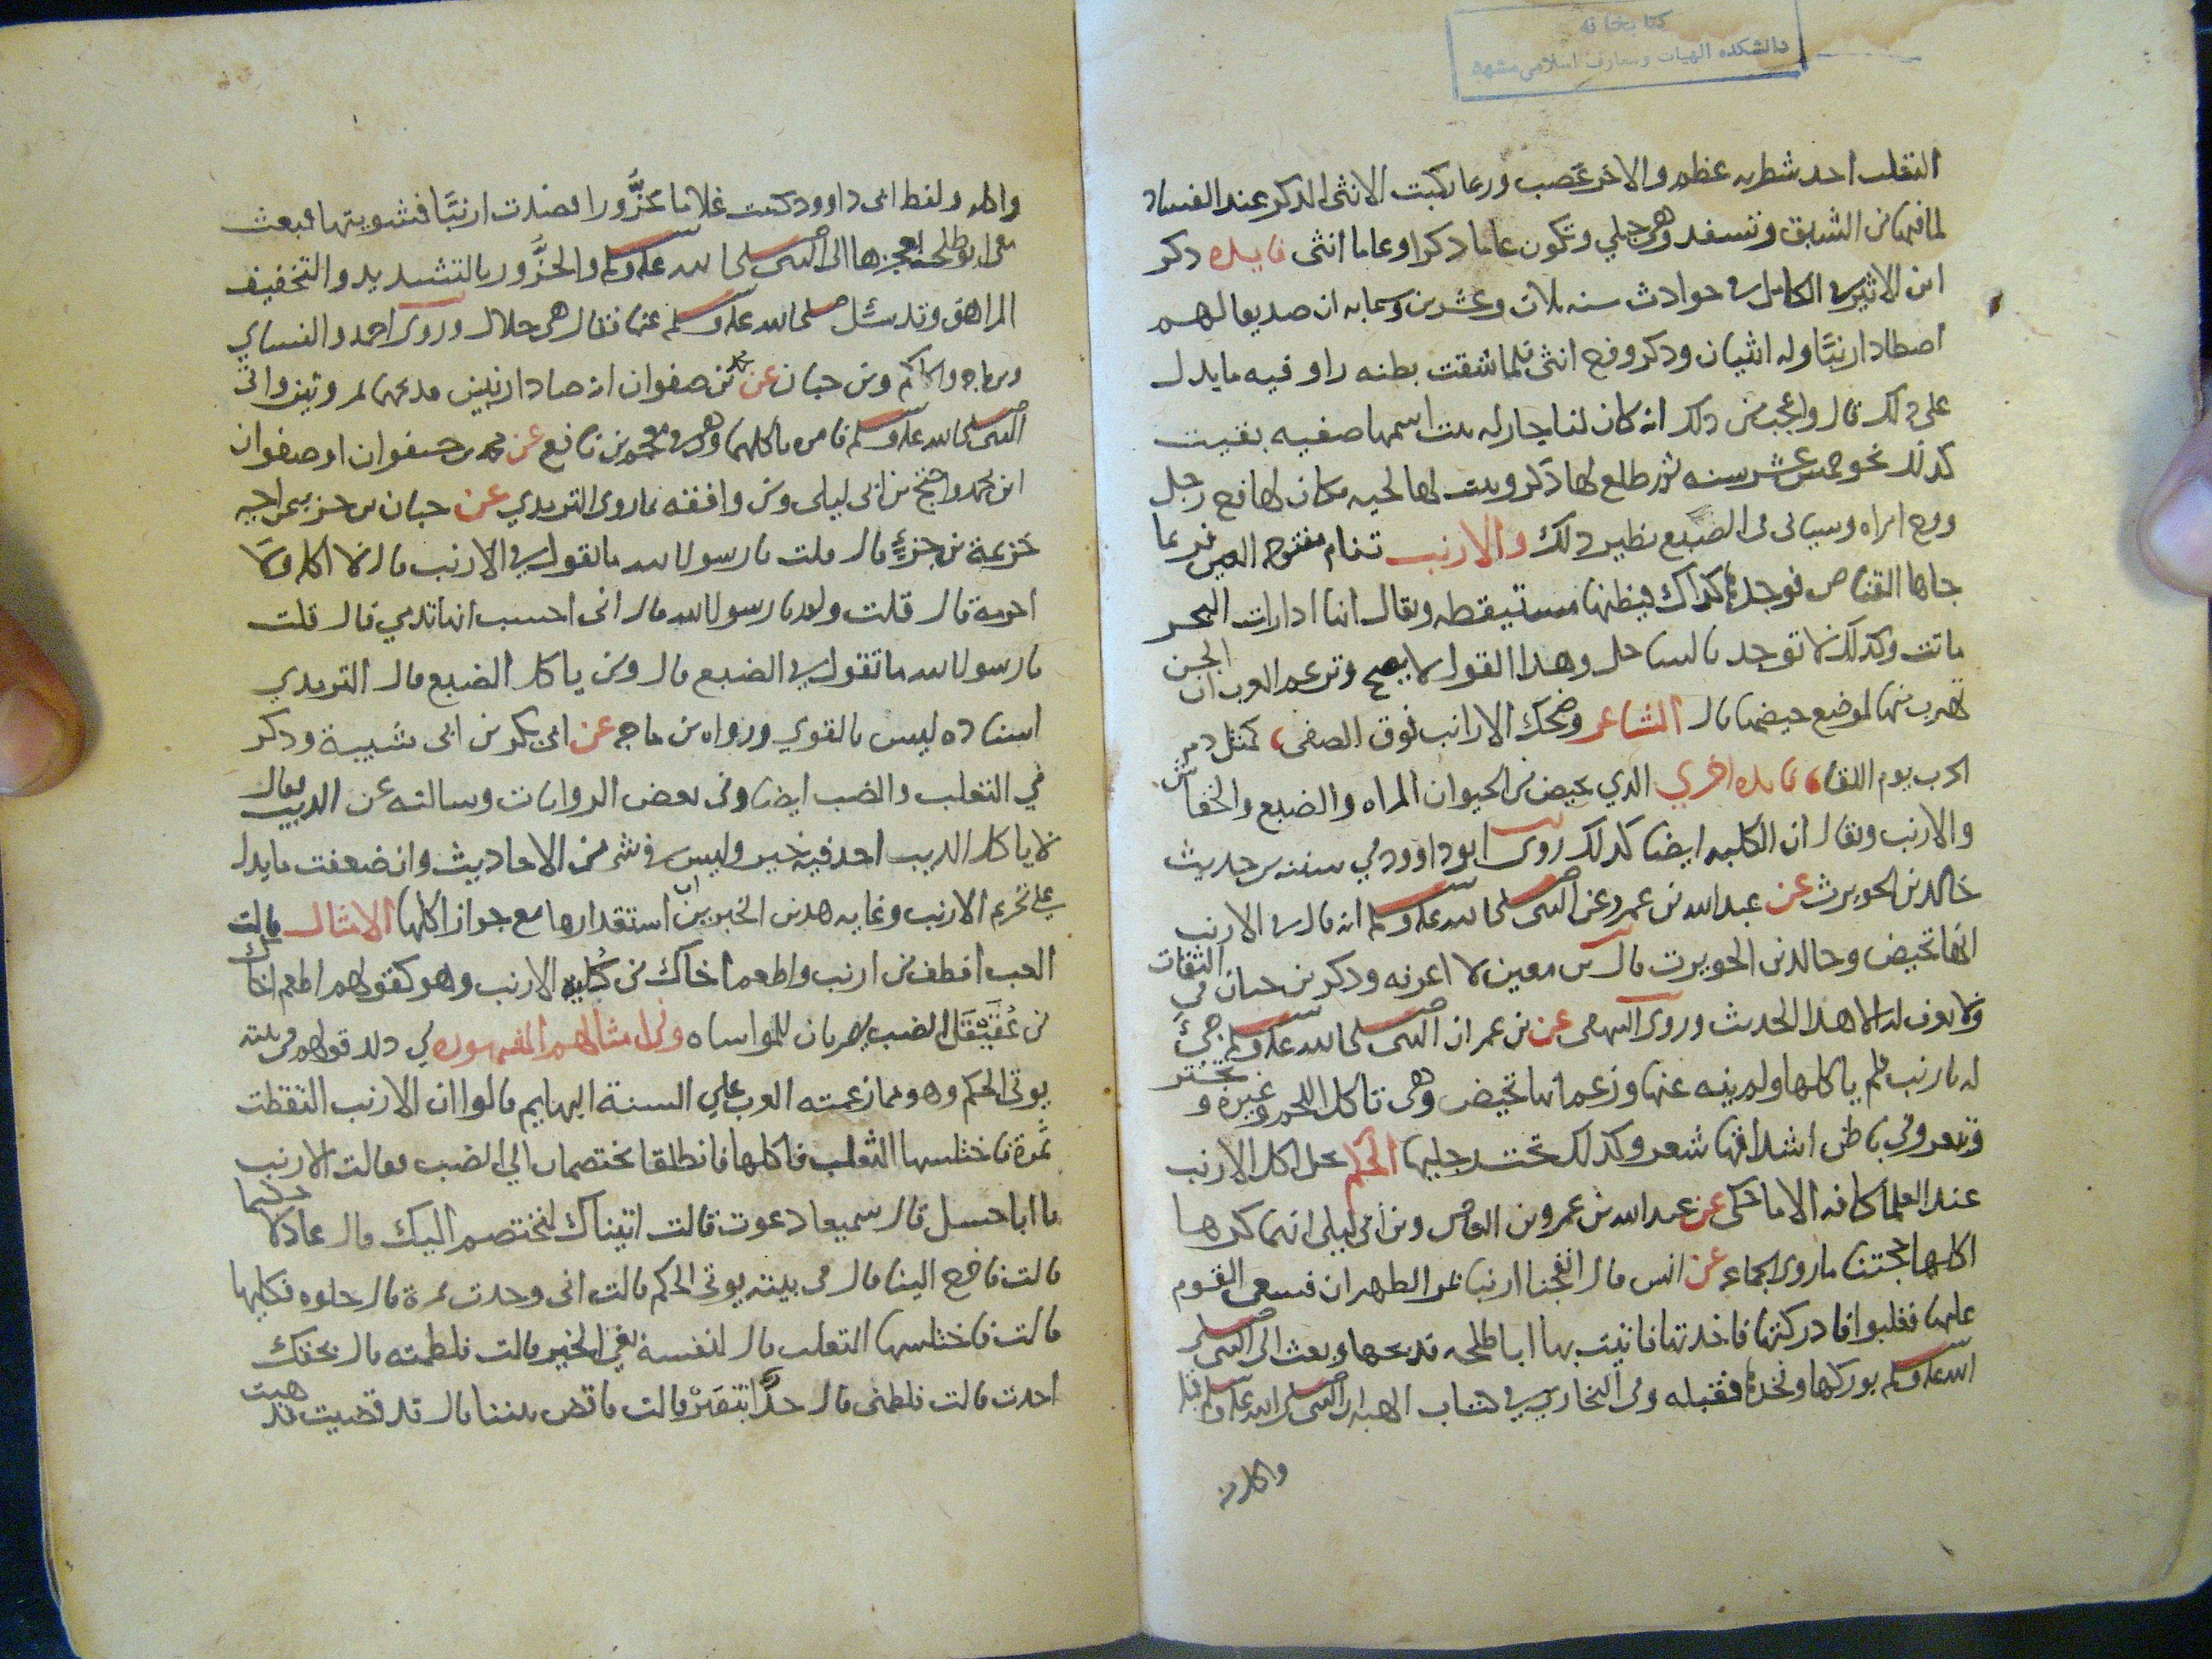 كتابخانه
دانشكده الهيات ومعارف اسلامى مشهد
الثعلب احد شطريه عظم والاخر عصب وربما ركبت الانثى الذكر عند الفساد
لما فيها من الشبق وتسفد وهي حبلي وتكون عاما ذكرا وعاما انثى فايده ذكر
ابن الاثير في الكامل في حوادث سنه ثلاث وعشرين وستمايه ان صديقا لهم
اصطاد ارنبا وله انثيان وذكر وفرج انثى فلما شقت بطنه راو فيه ما يدل
على ذلك قال واعجب من ذلك انه كان لنا جار له بنت اسمها صفيه بقيت
كذلك نحو خمس عشر سنه ثم طلع لها ذكر ونبت لها لحيه فكان لها فرج رجل
وفرج امراه وسياتى في الضبع نظير ذلك والارنب تنام مفتوحه العين فربما
جاها القناص فوجدها كذلك فيظنها مستيقظه ويقال انها اذا رات البحر
ماتت وكذلك لا توجد بالساحل وهذا القول لا يصح وتزعم العرب ان الجن
تهرب منها لموضع حيضها قال الشاعر وضحك الارانب فوق الصفى، كمثل دم
الحرب يوم اللقا، فايده اخري الذي يحيض من الحيوان المراه والضبع والخفاش
والارنب ويقال ان الكلبه ايضا كذلك روى ابو داوود في سننه من حديث
خالد بن الحويرث عن عبد الله بن عمرو عن النبى صلى الله عليه وسلم انه قال في الارنب
انها تحيض وخالد بن الحويرث قال بن معين لا اعرفه وذكر بن حبان في الثقات
ولا يعرف له الا هذا الحديث وروى البيهقى عن بن عمر ان النبى صلى الله عليه وسلم جئ
له بارنب فلم ياكلها ولم ينه عنها وزعم انها تحيض وهى تاكل اللحم وغيره وتجتر
وتبعر وفي باطن اشداقها شعر وكذلك تحت رجليها الحكم يحل اكل الارنب
عند العلما كافه الا ما حكى عن عبد الله بن عمرو بن العاص وبن ابى ليلى انهما كرها
اكلها حجتنا ما روى الجماعه عن انس قال انفجنا ارنبا بمر الظهران فسعى القوم
عليها فغلبوا فادركتها فاخذتها فاتيت بها ابا طلحه فذبحها وبعث الى النبى صلى
الله عليه وسلم بوركها وفخذها فقبله وفى البخاري في كتاب الهبه ان النبى صلى الله عليه وسلم قبله
واكل منه
واكله ولفظ ابى داوود كنت غلاما حزورا فصدت ارنبا فشويتها فبعث
معى ابو طلحه بعجزها الى النبى صلى الله عليه وسلم والحزور بالتشديد والتخفيف
المراهق وقد سئل صلى الله عليه وسلم عنها فقال هى حلال وروى احمد والنساي
وبن ماجه والحاكم وبن حبان عن محمد بن صفوان انه صاد ارنبين فذبحهما بمروتين واتى
النبى صلى الله عليه وسلم فامره باكلهما وهو في معجم بن قانع عن محمد بن صفوان او صفوان
ابن محمد واحتج بن ابى ليلى ومن وافقه بما روى الترمذي عن حبان بن جزء عن اخيه
خزيمة بن جزء قال قلت يا رسول الله ما تقول في الارنب قال لا اكله ولا
احرمه قال قلت ولم يا رسول الله قال انى احسب انها تدمي قال قلت
يا رسول الله ما تقول في الضبع قال ومن ياكل الضبع قال الترمذي
اسناده ليس بالقوي ورواه بن ماجه عن ابى بكر بن ابى شيبة وذكر
في الثعلب والضب ايضا وفى بعض الروايات وسالته عن الذيب فقال
لا ياكل الذيب احد فيه خير وليس في شي من الاحاديث وان ضعفت ما يدل
على تحريم الارنب وغايه هذين الخبرين استقذارها مع جواز اكلها الامثال قالت
العرب اقطف من ارنب واطعم اخاك من كلية الارنب وهو كقولهم اطعم اخاك
من عقنقل الضب يضربان للمواساه ومن امثالهم المشهوره في ذلك قولهم في بيته
يوتى الحكم وهو مما زعمته العرب على السنة البهايم قالوا ان الارنب التقطت
تمرة فاختلسها الثعلب فاكلها فانطلقا يختصمان الي الضب فقالت الارنب
يا ابا حسل قال سميعا دعوت قالت اتيناك لنختصم اليك قال عادلا حكيما
قالت فاخرج الينا قال فى بيته يوتى الحكم قالت انى وجدت تمرة قال حلوه فكليها
قالت فاختلسها الثعلب قال لنفسه بغى الخير قالت فلطمته قال بحقك
اخذت قالت فلطمنى قال حر انتصر قالت فاقض بيننا قال قد قضيت فذهبت